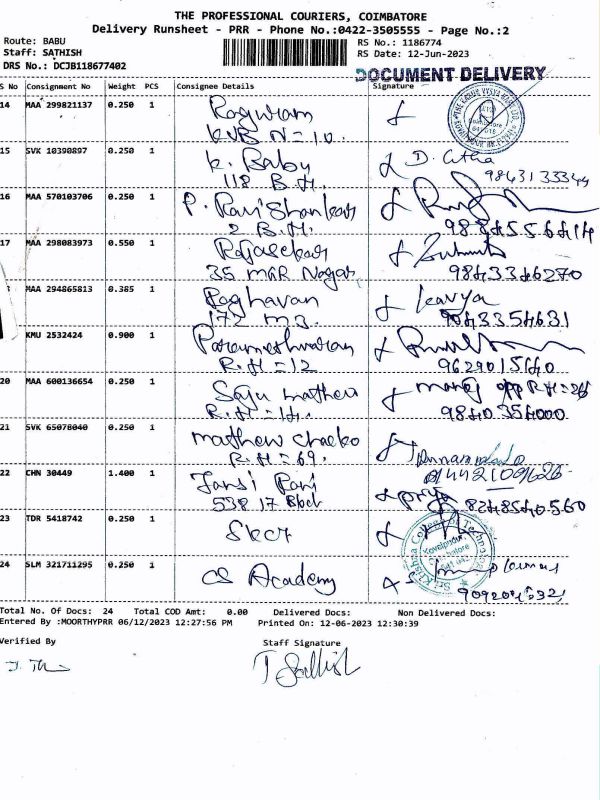 THE PROFESSIONAL COURIERS, COIMBATORE
Delivery Runsheet - PRR - Phone No.:0422-3505555 - Page No.:2
Route: BABU
RS No.: 1186774
Staff: SATHISH
RS Date: 12-Jun-2023
DRS No.: DCJB118677402
DOCUMENT DELIVERY
S No Consignment No Weight PCS Consignee Details Signature
14 MAA 299821137 0.250 1 Raguram
KVB N=10.
15 SVK 10390897 0.250 1 K. Baby
118 B.H.
9843133344
16 MAA 570103706 0.250 1 P. Ravi Shankar
2 B.H.
17 MAA 298083973 0.550 1 Rajasekar
35 MGR Nagar
9843346270
MAA 294865813 0.385 1 Raghavan Kavya
172 M3.
KMU 2532424 0.900 1 Parameshwaran
R.H=12
20 MAA 600136654 0.250 1 Saju mathew
R.H=14.
9840354000
21 SVK 65078040 0.250 1 mathew chacko
R.H=69.
22 CHN 30449 1.400 1 Jansi Rani Priya 8248540560
538 17 Block
23 TDR 5418742 0.250 1 Skct
Sri Krishna College of Technology
Kovaipudur
Coimbatore
641 042
24 SLM 321711295 0.250 1 CS Academy
Total No. Of Docs: 24 Total COD Amt: 0.00 Delivered Docs: Non Delivered Docs:
Entered By :MOORTHYPRR 06/12/2023 12:27:56 PM Printed On: 12-06-2023 12:30:39
Verified By
Staff Signature
T Sathish